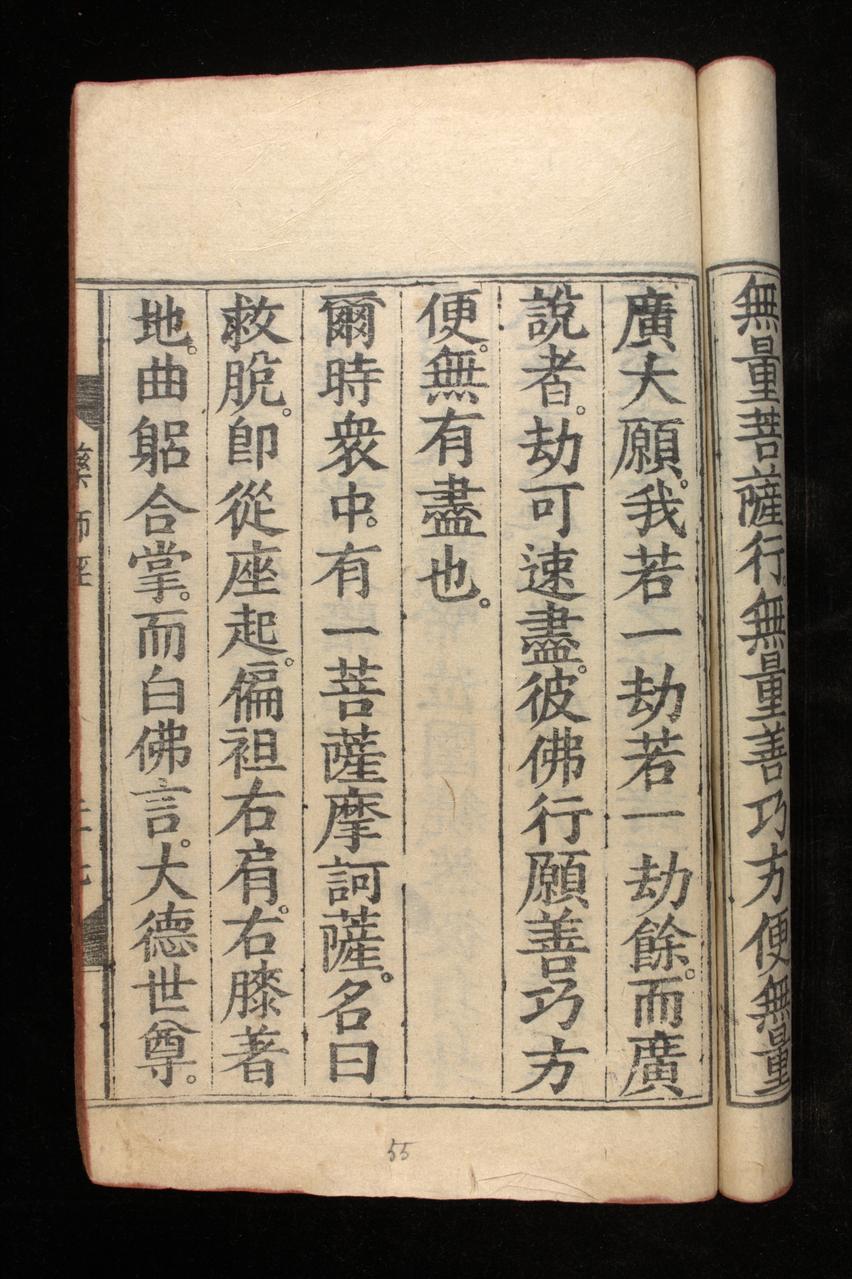 無量菩薩行。無量善巧方便無量
廣大願。我若一劫若一劫餘。而廣
說者。劫可速盡。彼佛行願善巧方
便。無有盡也。
爾時衆中。有一菩薩摩訶薩。名曰
救脫。卽從座起。偏袒右肩。右膝著
地。曲躳合掌。而白佛言。大德世尊。
藥師經
55